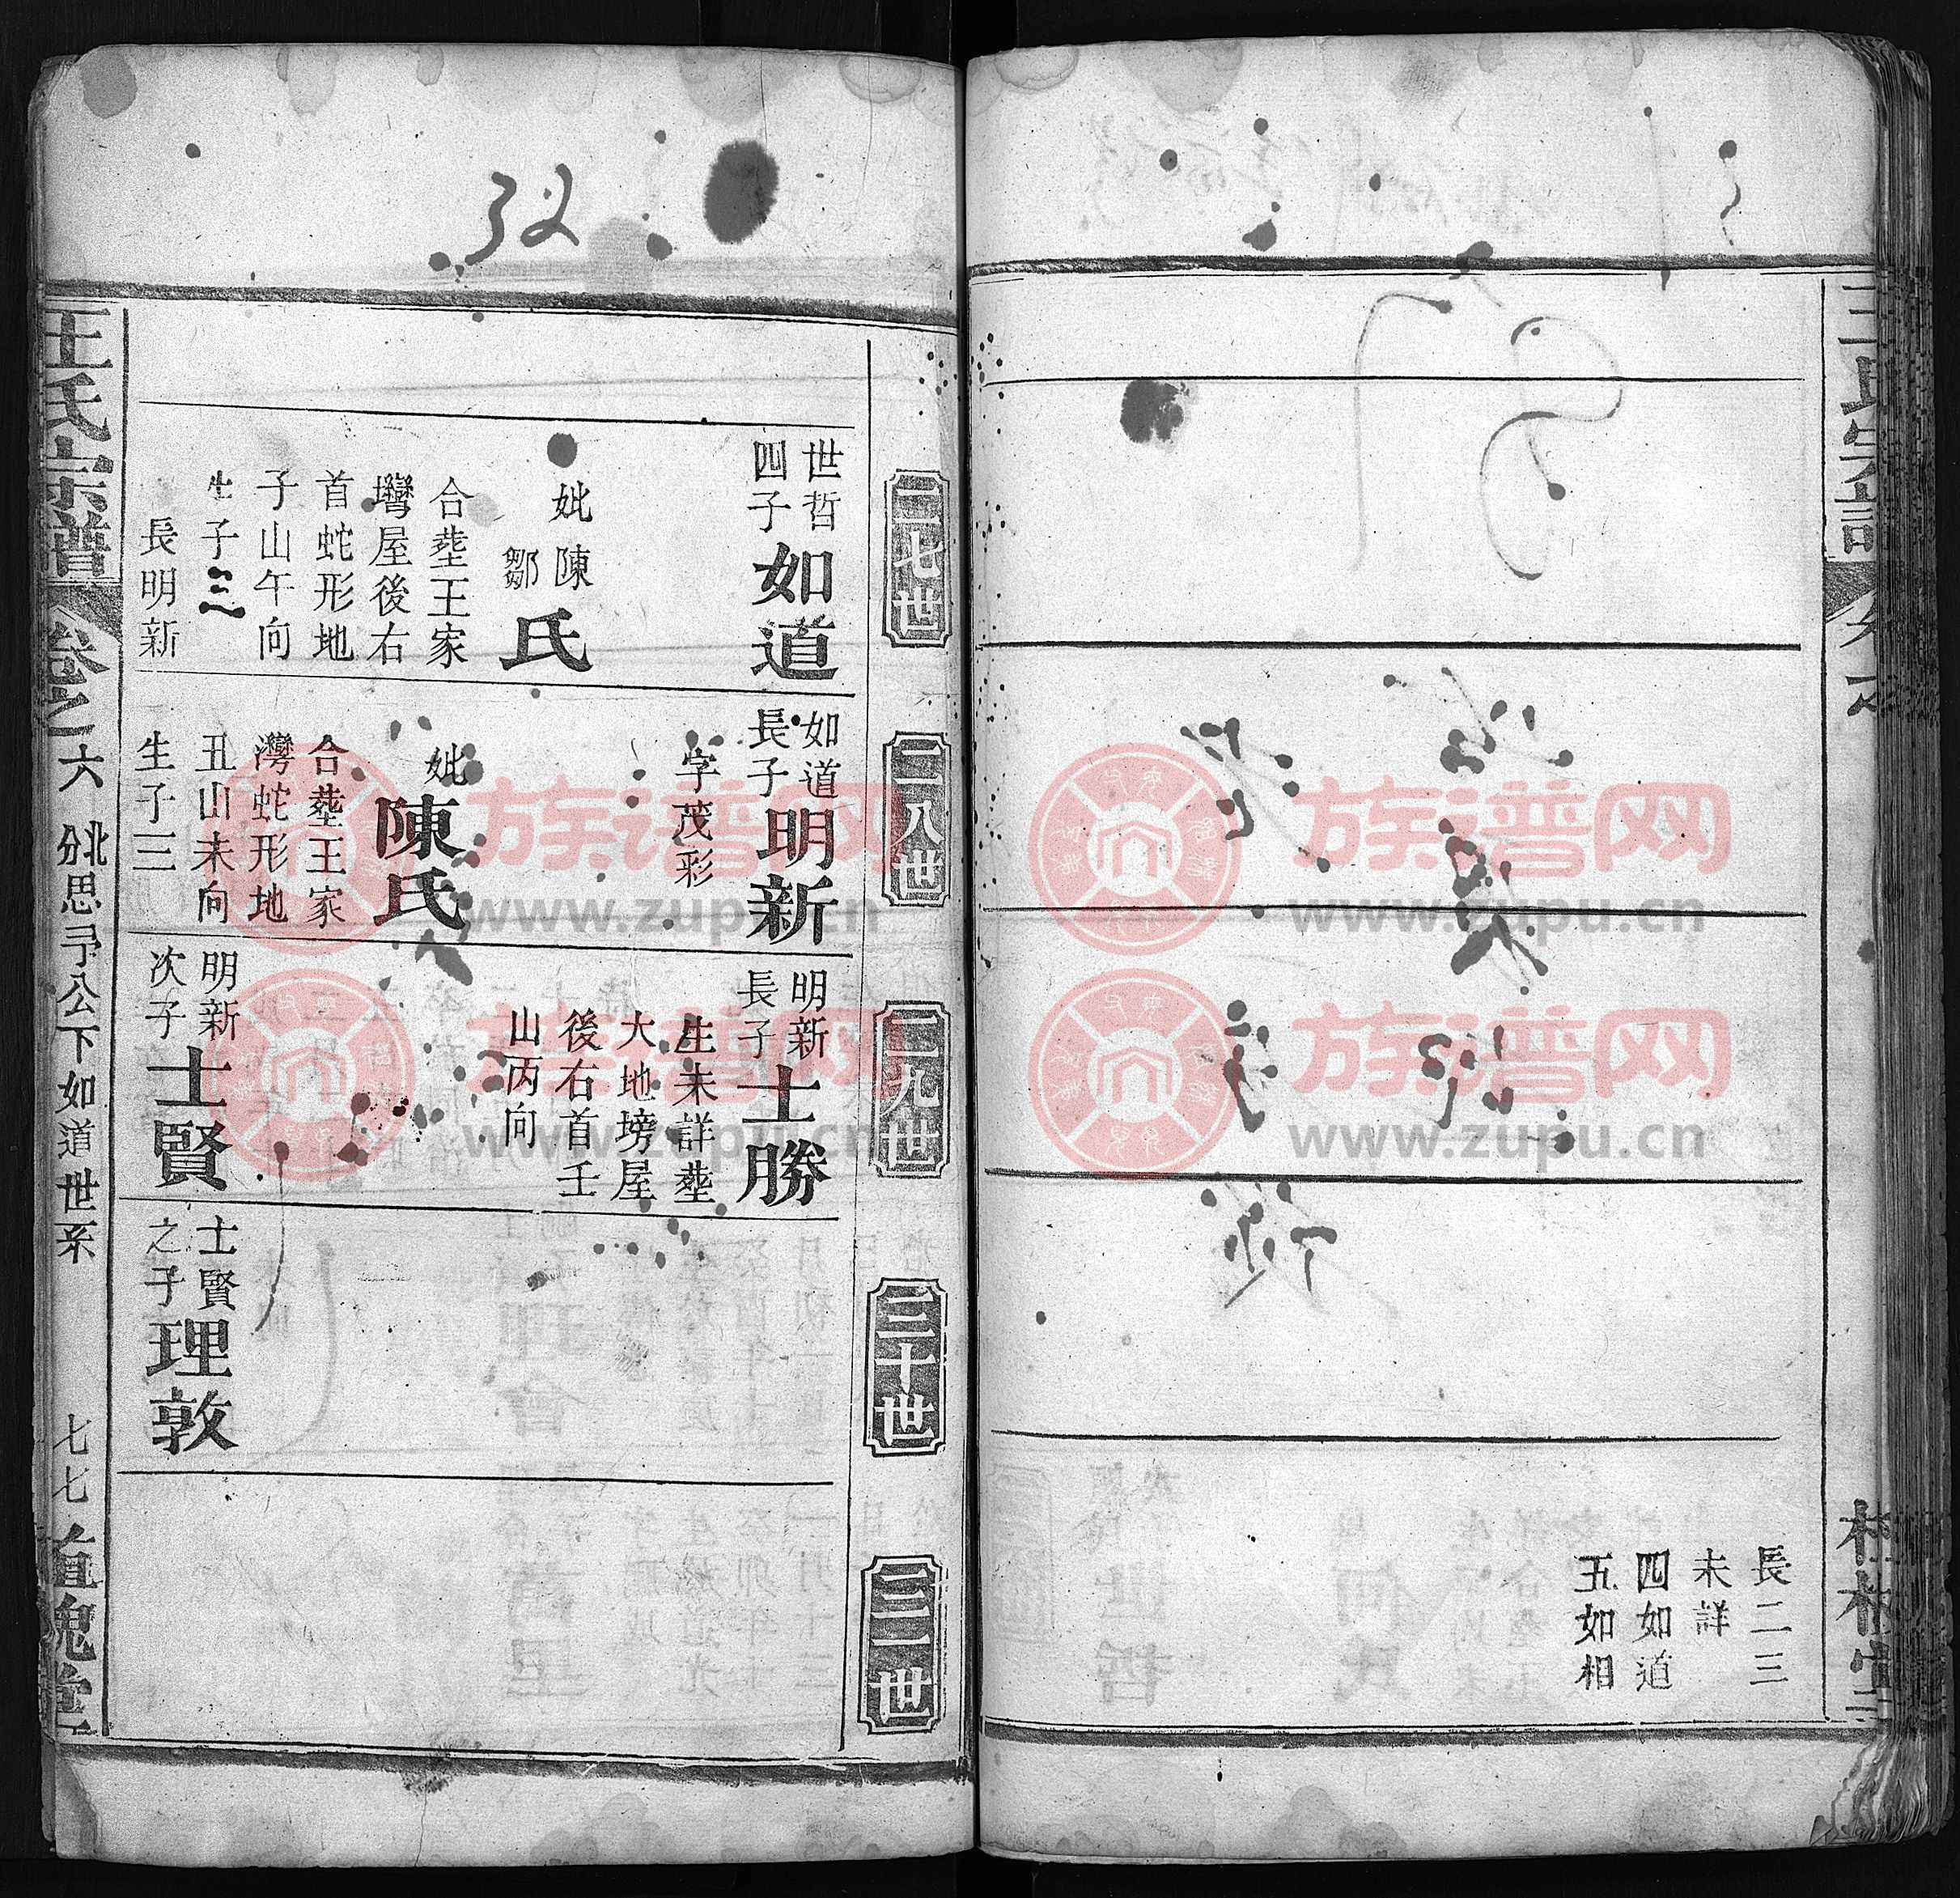 長二三
未詳
四如道
五如相
32
二七世
二八世
二九世
三十世
三一世
世哲
四子
如道
妣陳
鄒
氏
合塟王家
灣屋後右
首蛇形地
子山午向
生子三
長明新
如道
長子
明新
字茂彩
妣陳氏
合塟王家
灣蛇形地
丑山未向
生子三
明新
長子
士勝
生未詳塟
大地塝屋
後右首壬
山丙向
明新
次子
士賢
士賢
之子
理敦
王氏宗譜
卷之六
北分思予公下如道世系
七七
植槐堂
族谱网
www.zupu.cn
族谱网
www.zupu.cn
族谱网
www.zupu.cn
族谱网
www.zupu.cn